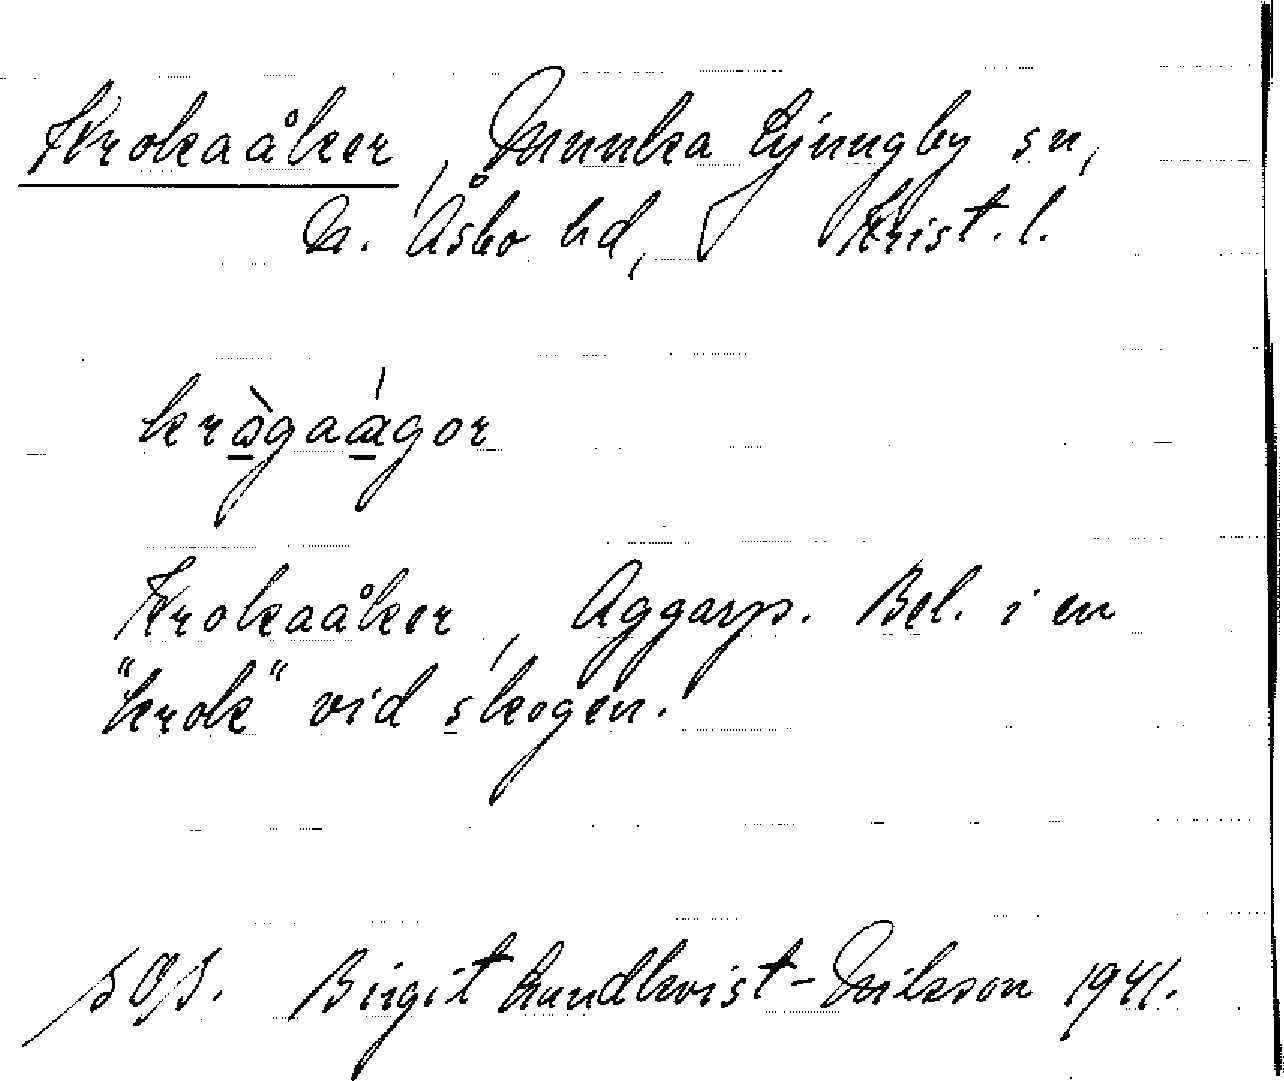 Krokaåker, Munka Ljungby sn,
N. Åsbo hd, Krist. l.
krågaågor
Krokaåker, Aggarp. Bel. i en
"krok" vid skogen.
Birgit Lundkvist-Nilsson 1941.